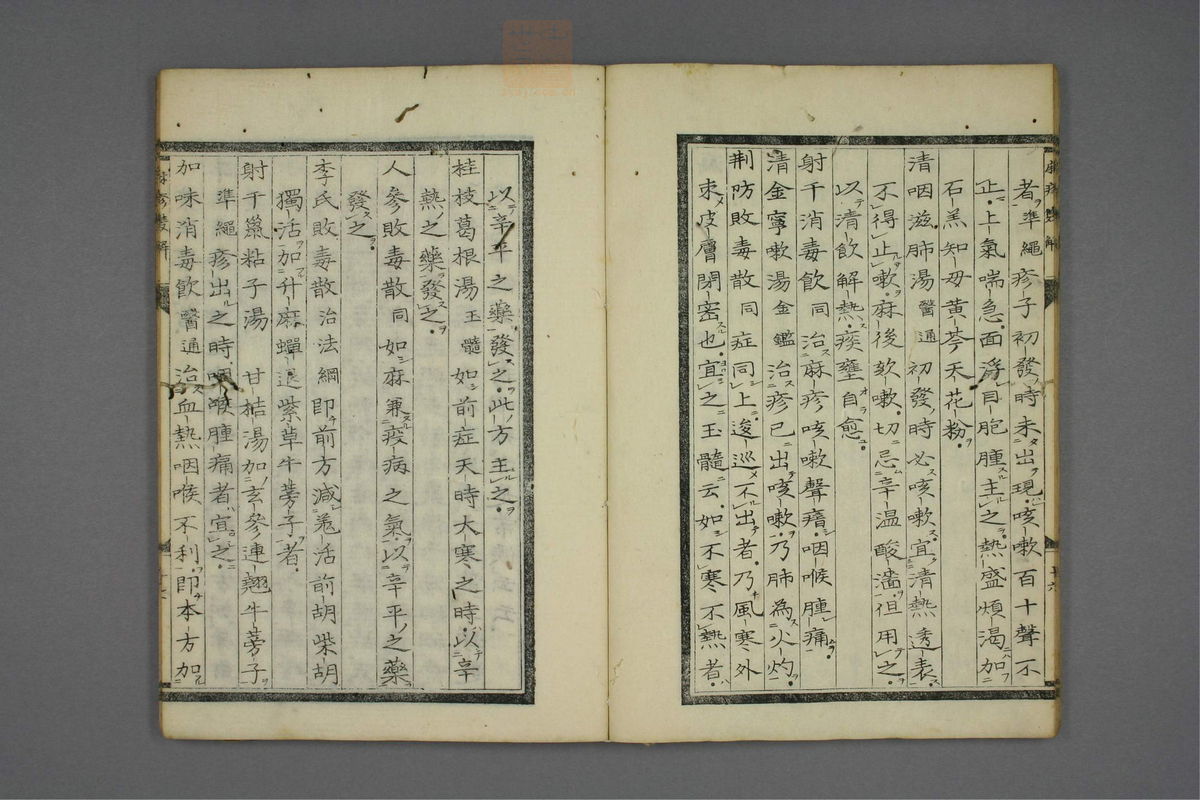 者準繩疹子初發時未出現咳嗽百十聲不
止上氣喘急面浮目胞腫主之熱盛煩渴加
石羔知母黃芩天花粉
清咽滋肺湯醫通初發時必咳嗽宜清熱透表
不得止嗽麻後欬嗽切忌辛温酸濇但用之
以清飲解熱痰壅自愈
射干消毒飲同治麻疹咳嗽聲瘖咽喉腫痛
清金寧嗽湯金鑑治疹已出咳嗽乃肺為火灼
荆防敗毒散同症同上逡巡不出者乃風寒外
束皮膚閉密也宜之玉髓云如不寒不熱者
以辛平之藥發之此方主之
桂枝葛根湯玉髓如前症天時大寒之時以辛
熱之藥發之
人參敗毒散同如麻兼疫病之氣以辛平之藥
發之
李氏敗毒散治法綱即前方減羌活前胡柴胡
獨活加升麻蟬退紫草牛蒡子者
射干鼠粘子湯甘桔湯加玄參連翹牛蒡子
準繩疹出之時咽喉腫痛者宜之
加味消毒飲醫通治血熱咽喉不利即本方加